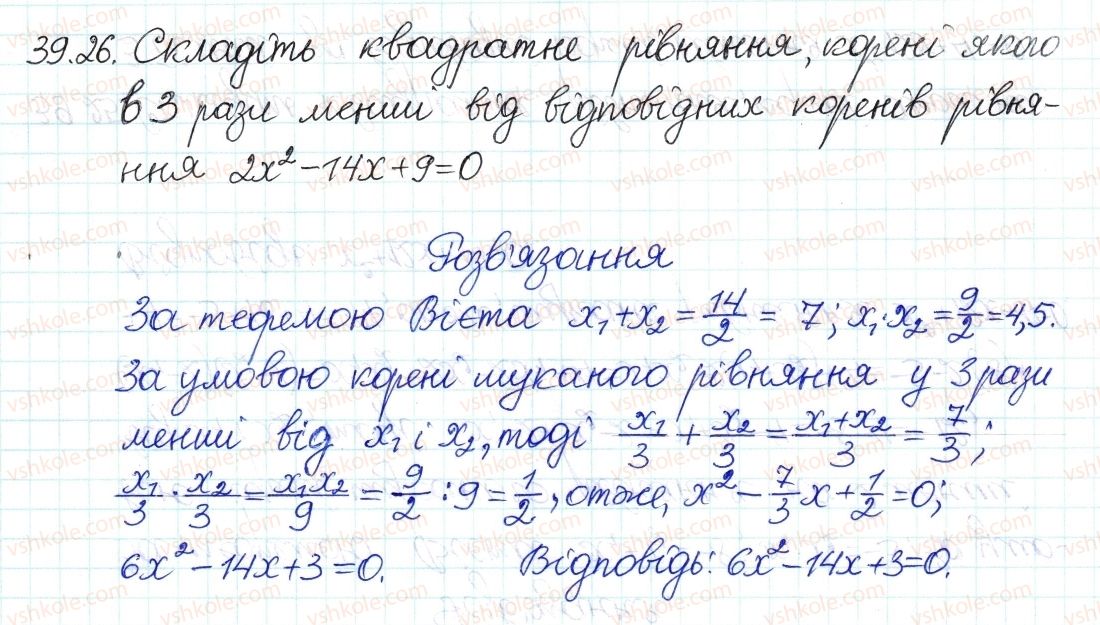 39.26. Складіть квадратне рівняння, корені якого
в 3 рази менші від відповідних коренів рівня-
ння 2x² - 14x + 9 = 0
Розв'язання
За теоремою Вієта x₁ + x₂ = 14/2 = 7; x₁·x₂ = 9/2 = 4,5.
За умовою корені шуканого рівняння у 3 рази
менші від x₁ і x₂, тоді x₁/3 + x₂/3 = (x₁+x₂)/3 = 7/3;
x₁/3 · x₂/3 = x₁x₂/9 = 9/2 : 9 = 1/2, отже, x² - 7/3x + 1/2 = 0;
6x² - 14x + 3 = 0. Відповідь: 6x² - 14x + 3 = 0.